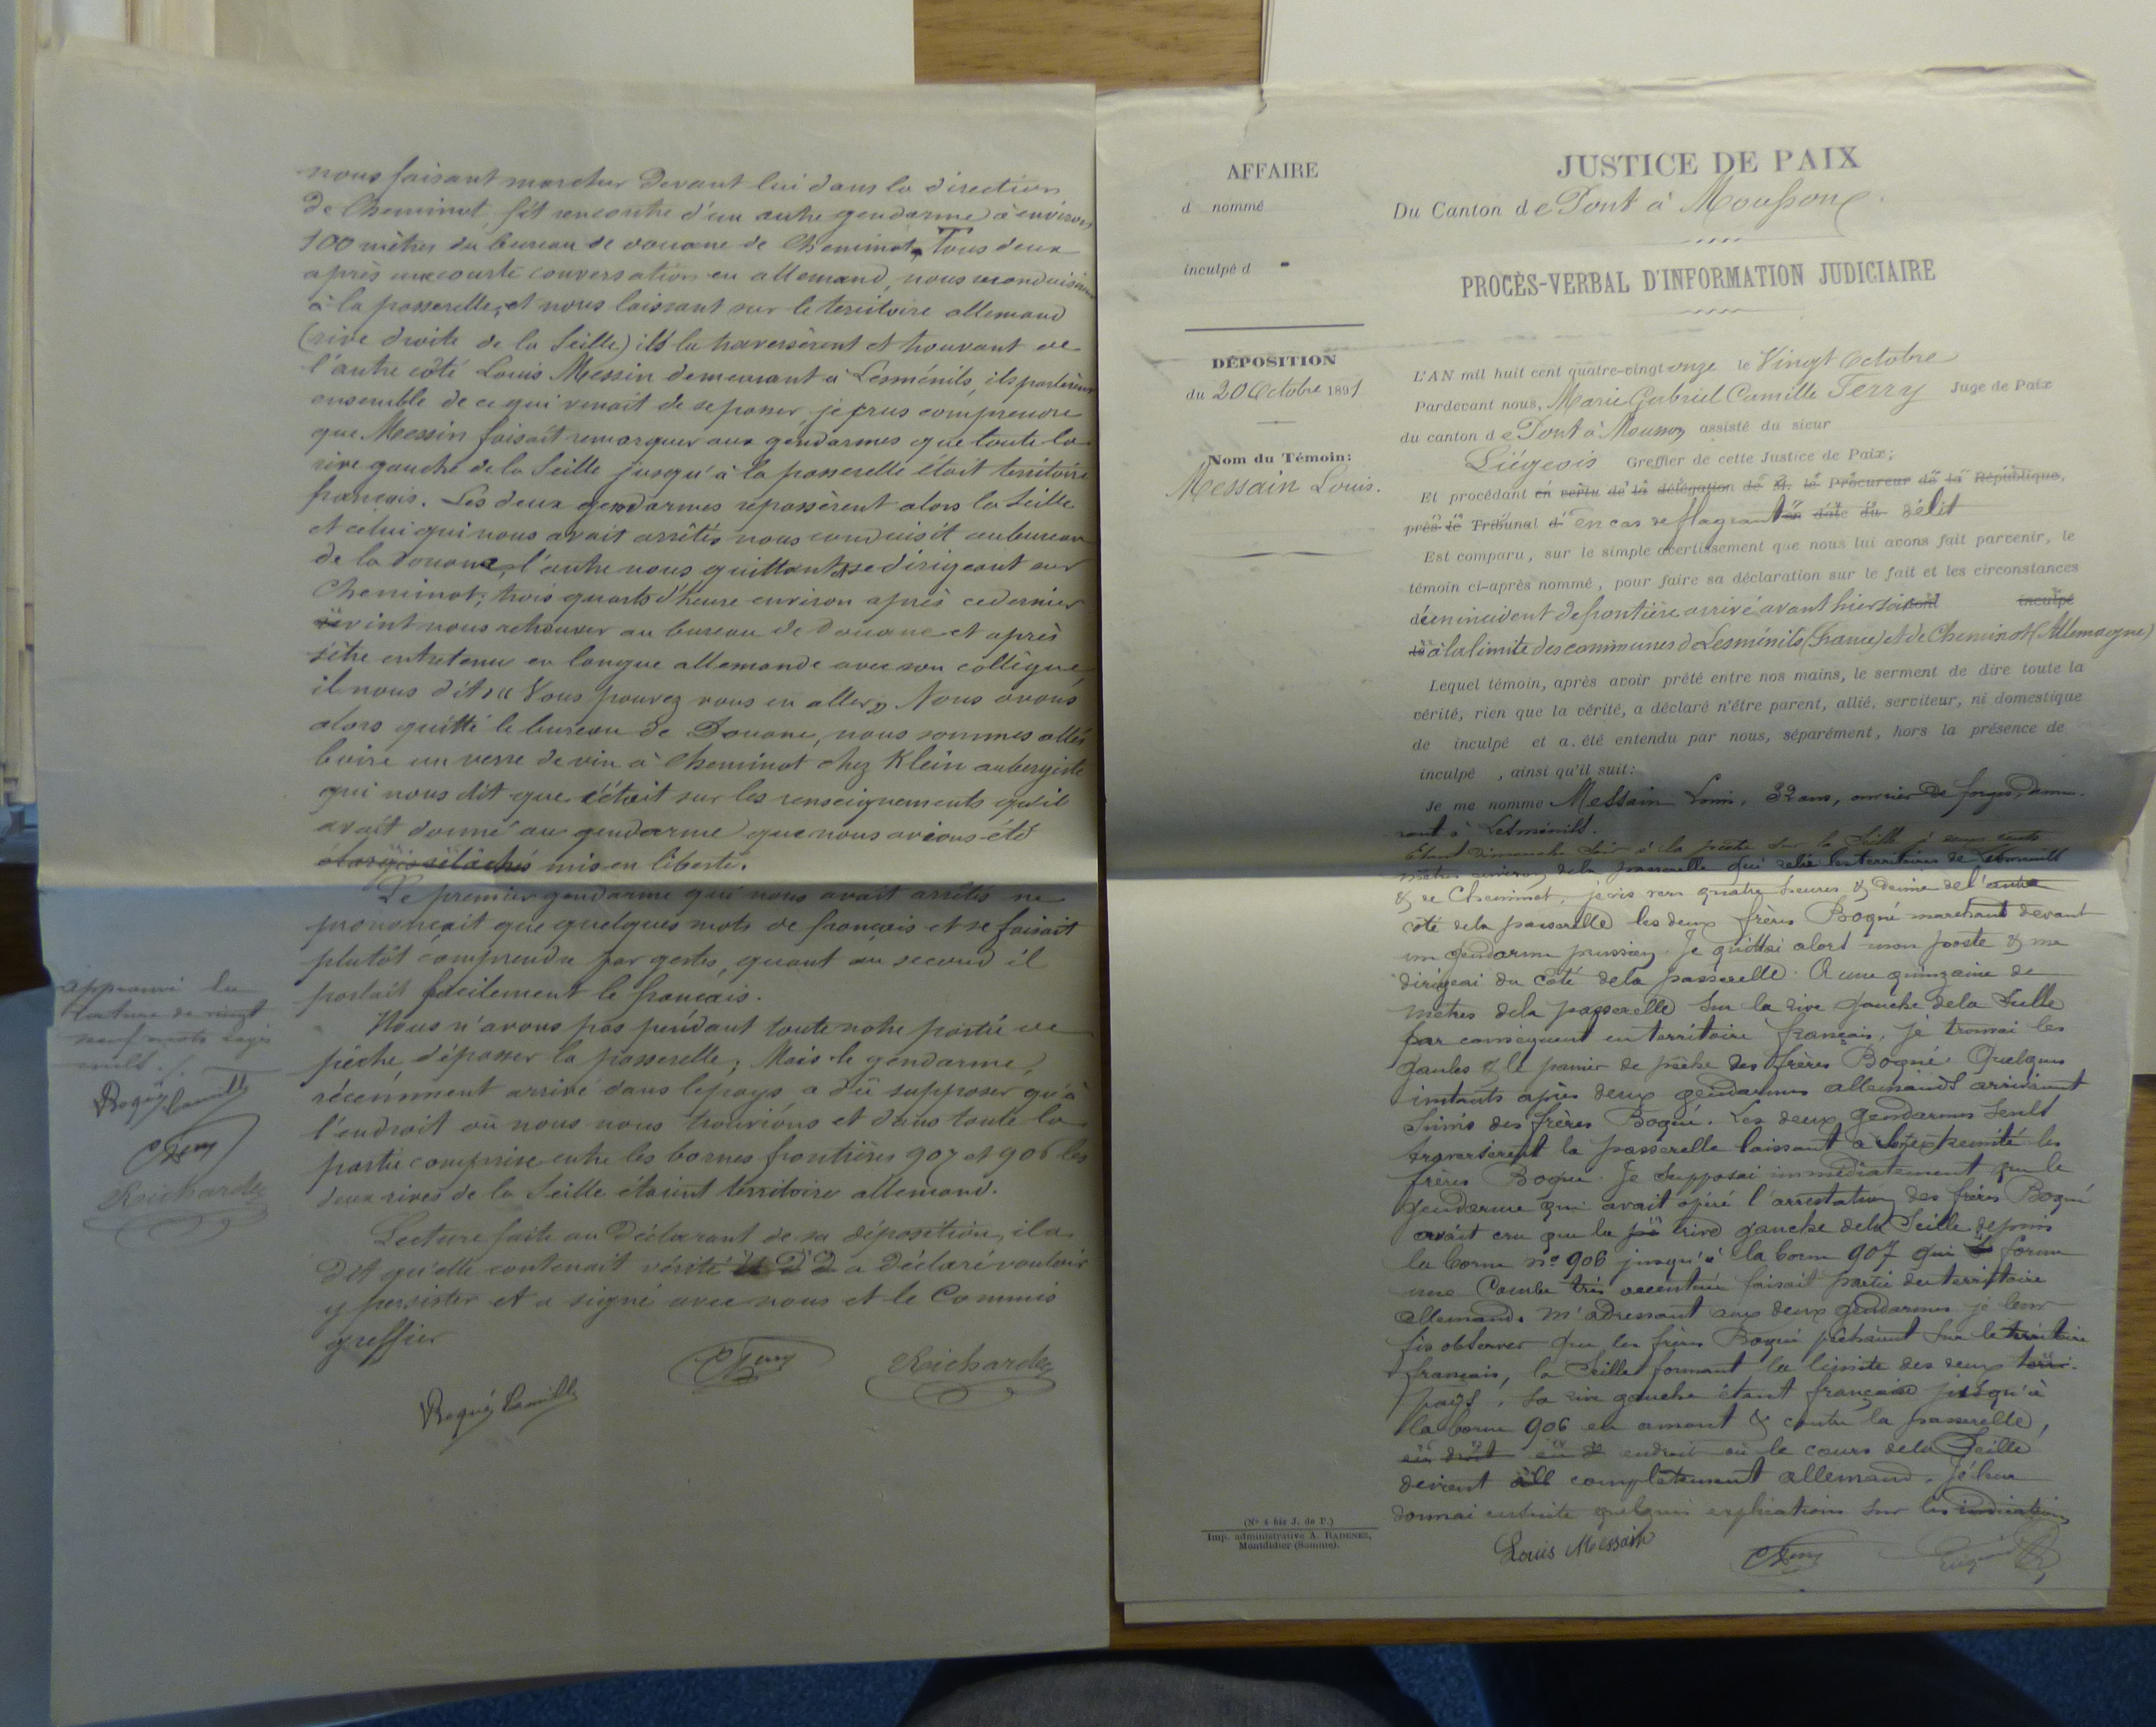 nous faisant marcher devant lui dans la direction
de Cheminot, fit rencontre d'un autre gendarme à environ
100 mètres du bureau de douane de Cheminot. Tous deux
après une courte conversation en allemand, nous reconduisirent
à la passerelle, et nous laissant sur le territoire allemand
(rive droite de la Seille) ils la traversèrent et trouvant de
l'autre côté Louis Messin demeurant à Lesménils, ils parlèrent
ensemble de ce qui venait de se passer, je crus comprendre
que Messin faisait remarquer aux gendarmes que toute la
rive gauche de la Seille jusqu'à la passerelle était territoire
français. Les deux gendarmes repassèrent alors la Seille
et celui qui nous avait arrêtés nous conduisit au bureau
de la douane, l'autre nous quittant se dirigeant sur
Cheminot; trois quarts d'heure environ après ce dernier
vint nous retrouver au bureau de Douane et après
s'être entretenu en langue allemande avec son collègue,
il nous dit "Vous pouvez vous en aller" Nous avons
alors quitté le bureau de Douane, nous sommes allés
boire un verre de vin à Cheminot chez Klein aubergiste
qui nous dit que c'était sur les renseignements qu'il
avait donné au gendarme que nous avions été
élargis relâchés mis en liberté.
Le premier gendarme qui nous avait arrêtés ne
prononçait que quelques mots de français et se faisait
plutôt comprendre par gestes, quant au second il
parlait facilement le français.
Nous n'avons pas pendant toute notre partie de
pêche, dépasser la passerelle; Mais le gendarme,
récemment arrivé dans le pays a dû supposer qu'à
l'endroit où nous nous trouvions et dans toute la
partie comprise entre les bornes frontières 907 et 906 les
deux rives de la Seille étaient territoire allemand.
Lecture faite au Déclarant de sa déposition, il a
dit qu'elle contenait vérité a déclaré vouloir
y persister et a signé avec nous et le Commis
greffier
Boqué Camille CFerry Reichardt
approuvé la
rature de vingt
neuf mots rayés
nuls ./.
Boqué Camille
CFerry
Reichardt
AFFAIRE
d nommé
inculpé d
DÉPOSITION
du 20 Octobre 1891
Nom du Témoin:
Messain Louis.
(No 4 bis J. de P.)
Imp. administrative A. RADENEZ,
Montdidier (Somme).
JUSTICE DE PAIX
Du Canton de Pont à Mousson
PROCÈS-VERBAL D'INFORMATION JUDICIAIRE
L'AN mil huit cent quatre-vingt onze le Vingt Octobre
Pardevant nous, Marie Gabriel Camille Ferry Juge de Paix
du canton de Pont à Mousson assisté du sieur
Liégeois Greffier de cette Justice de Paix;
Et procédant en vertu de la délégation de M. le Procureur de la République,
près le Tribunal d' en cas de flagrant en date du délit
Est comparu, sur le simple avertissement que nous lui avons fait parvenir, le
témoin ci-après nommé, pour faire sa déclaration sur le fait et les circonstances
d'un incident de frontière arrivé avant hier soir dont inculpé
à la limite des communes de Lesménils (France) et de Cheminot (Allemagne)
Lequel témoin, après avoir prêté entre nos mains, le serment de dire toute la
vérité, rien que la vérité, a déclaré n'être parent, allié, serviteur, ni domestique
de inculpé et a été entendu par nous, séparément, hors la présence de
inculpé , ainsi qu'il suit:
Je me nomme Messain Louis, 32 ans, ouvrier de forges, demeu-
rant à Lesménils.
Etant dimanche soir à la pêche sur la Seille à cents
mètres environ de la passerelle qui relie les territoires de Lesménils
& de Cheminot, je vis vers quatre heures & demie de l'autre
côté de la passerelle les deux frères Boqué marchant devant
un gendarme prussien. Je quittai alors mon poste & me
dirigeai du côté de la passerelle. A une quinzaine de
mètres de la passerelle sur la rive gauche de la Seille
par conséquent en territoire français, je trouvai les
gaules & le panier de pêche des frères Boqué. Quelques
instants après deux gendarmes allemands arrivèrent
suivis des frères Boqué. Les deux gendarmes seuls
traversèrent la passerelle laissant à son extrémité les
frères Boqué. Je supposai immédiatement que le
gendarme qui avait opéré l'arrestation des frères Boqué
avait cru que la rive gauche de la Seille depuis
la borne no 906 jusqu'à la borne 907 qui forme
une courbe très accentuée faisait partie du territoire
allemand. M'adressant aux deux gendarmes je leur
fis observer que les frères Boqué pêchaient sur le territoire
français, la Seille formant la limite des deux terri-
pays, la rive gauche étant française jusqu'à
la borne 906 en amont & contre la passerelle,
endroit où le cours de la Seille
devient all complètement allemand. Je leur
donnai ensuite quelques explications sur les indications
Louis Messain CFerry